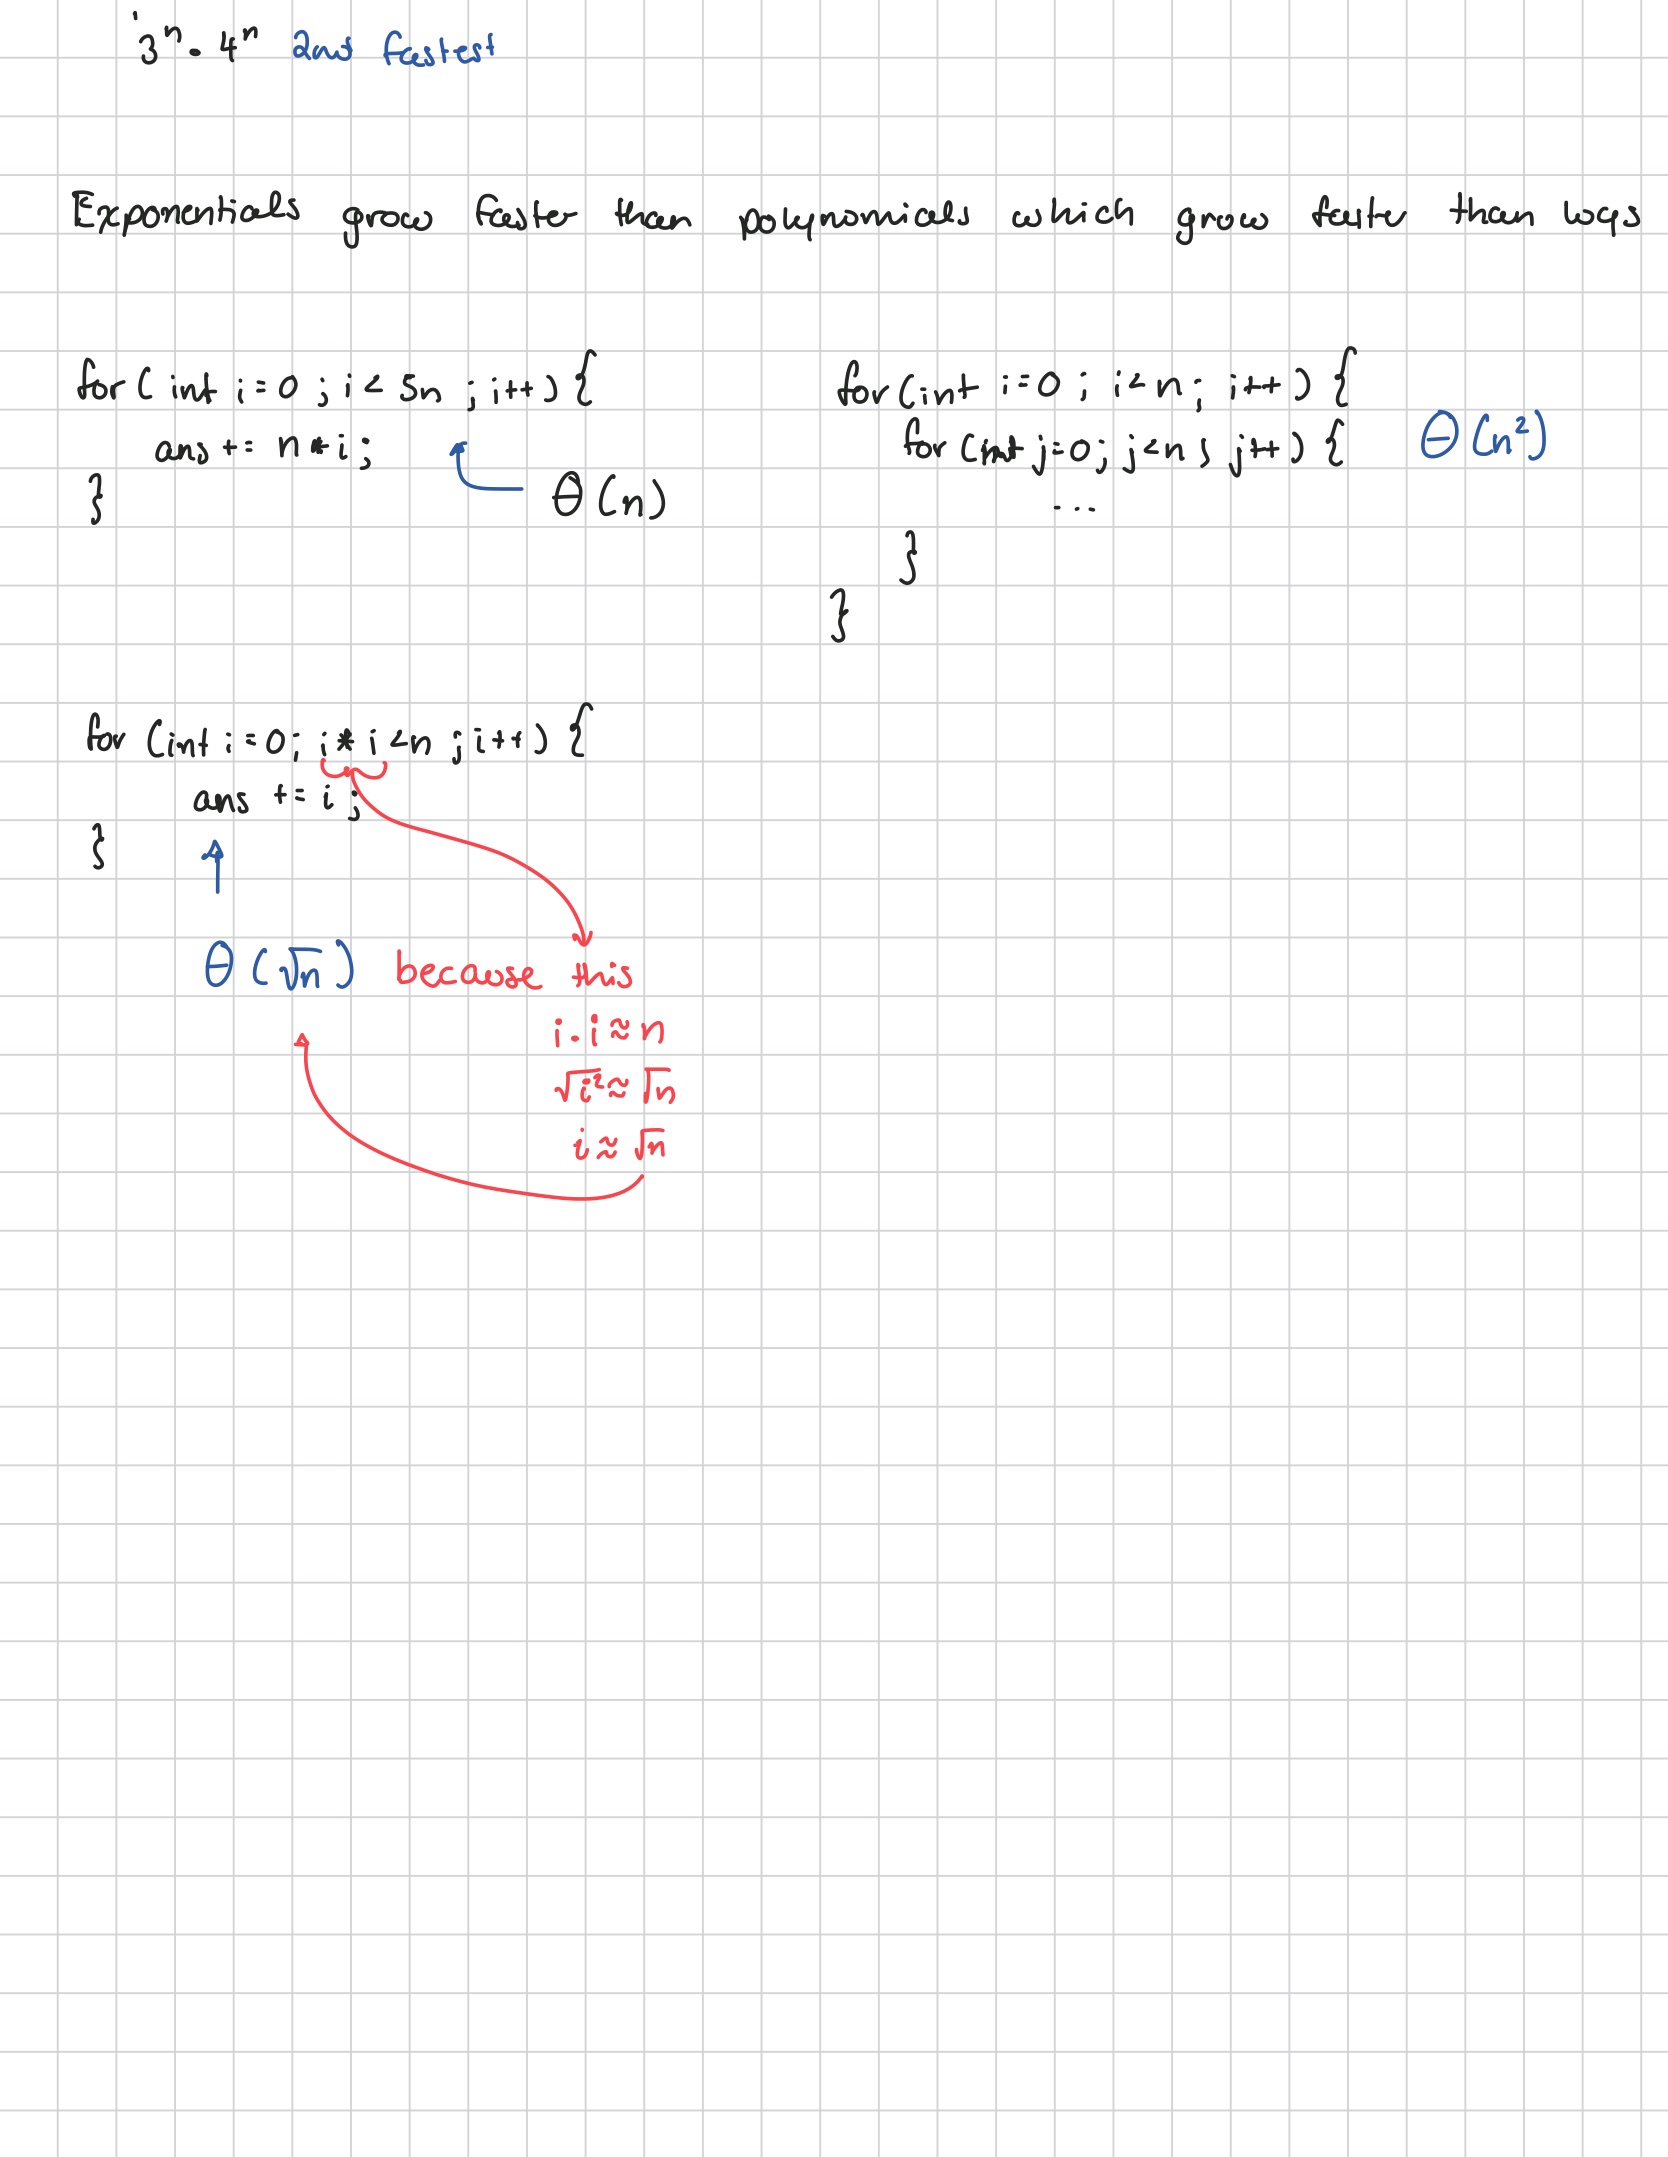 3ⁿ · 4ⁿ 2nd fastest
Exponentials grow faster than polynomials which grow faster than logs
for ( int i = 0 ; i < 5n ; i++ ) {
ans += n * i ;
}
Θ(n)
for (int i = 0 ; i < n ; i++ ) {
for (int j = 0 ; j < n ; j++ ) {
...
}
}
Θ(n²)
for (int i = 0; i * i < n ; i++) {
ans += i ;
}
Θ(√n) because this
i . i ≈ n
√i² ≈ √n
i ≈ √n